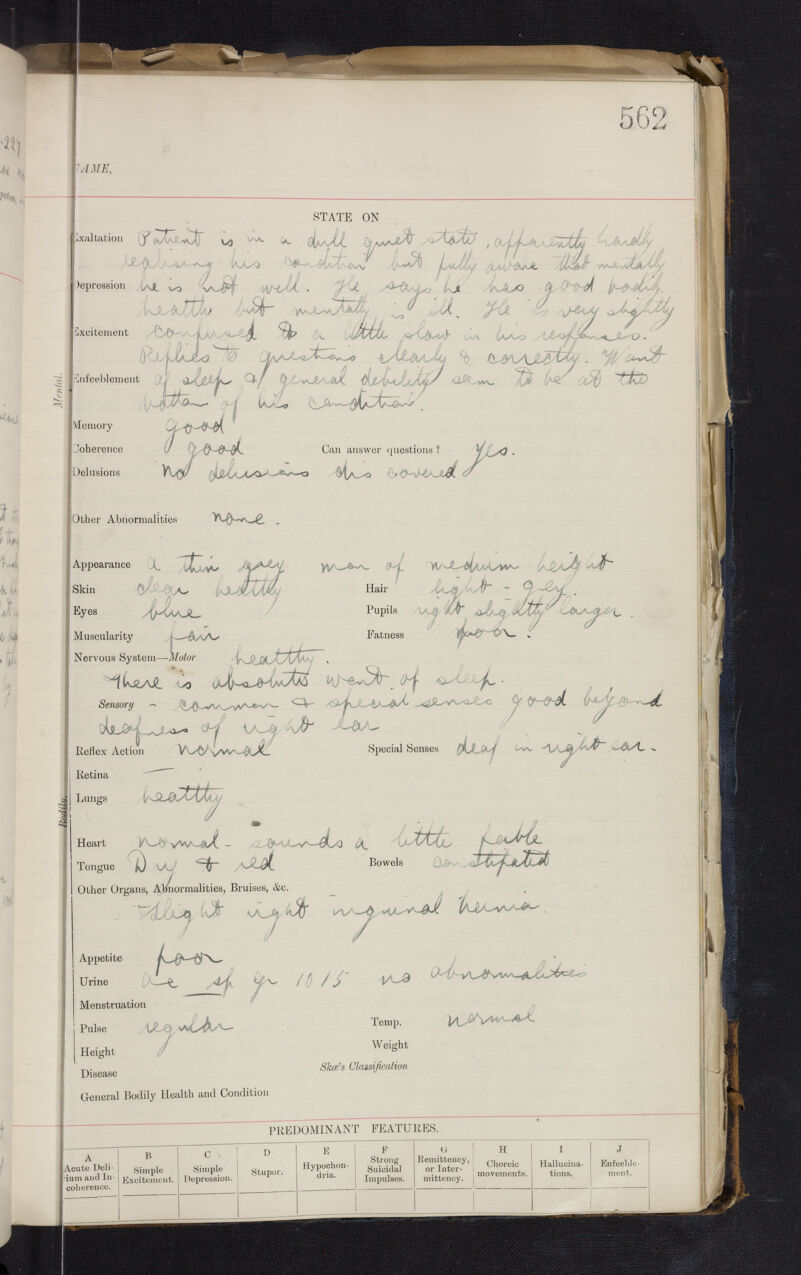 562
NAME.
STATE ON
Exaltation Patient is in a dull quiet state, apparently hardly
realising his condition but fully aware that mentally
Depression he is not well. He says he has good bodily
health but mentally is ill. He is very slightly
Excitement confused & a little slow in his responses.
Replies to questions clearly & correctly. Want
Enfeeblement of sleep & general debility seem to be at the
bottom of his condition.
Mental.
Memory good
Coherence good Can answer questions? Yes.
Delusions No delusions discovered
Other Abnormalities none.
Appearance a thin grey man of medium height
Skin clear healthy Hair light - grey.
Eyes blue Pupils right slightly larger.
Muscularity fair Fatness poor.
Nervous System—Motor healthy.
There is absolute want of sleep.
Sensory - common & special senses good beyond
deafness of right ear
Reflex Action normal Special Senses deaf in right ear.
Retina —
Bodily.
Lungs healthy
Heart normal - sounds a little feeble
Tongue Dry & red Bowels constipated
Other Organs, Abnormalities, Bruises, &c.
Slight right inguinal hernia.
Appetite poor
Urine sp gr 1015 no abnormalities
Menstruation
Pulse regular Temp. normal
Height Weight
Disease Skae's Classification
General Bodily Health and Condition
PREDOMINANT FEATURES.
A B C D E F G H I J
Acute Deli- Simple Simple Stupor. Hypochon- Strong Remittency, Choreic Hallucina- Enfeeble-
rium and In- Excitement. Depression. dria. Suicidal or Inter- movements. tions. ment.
coherence. Impulses. mittency.